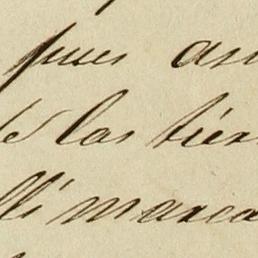 pues an
de las tier
lli marca